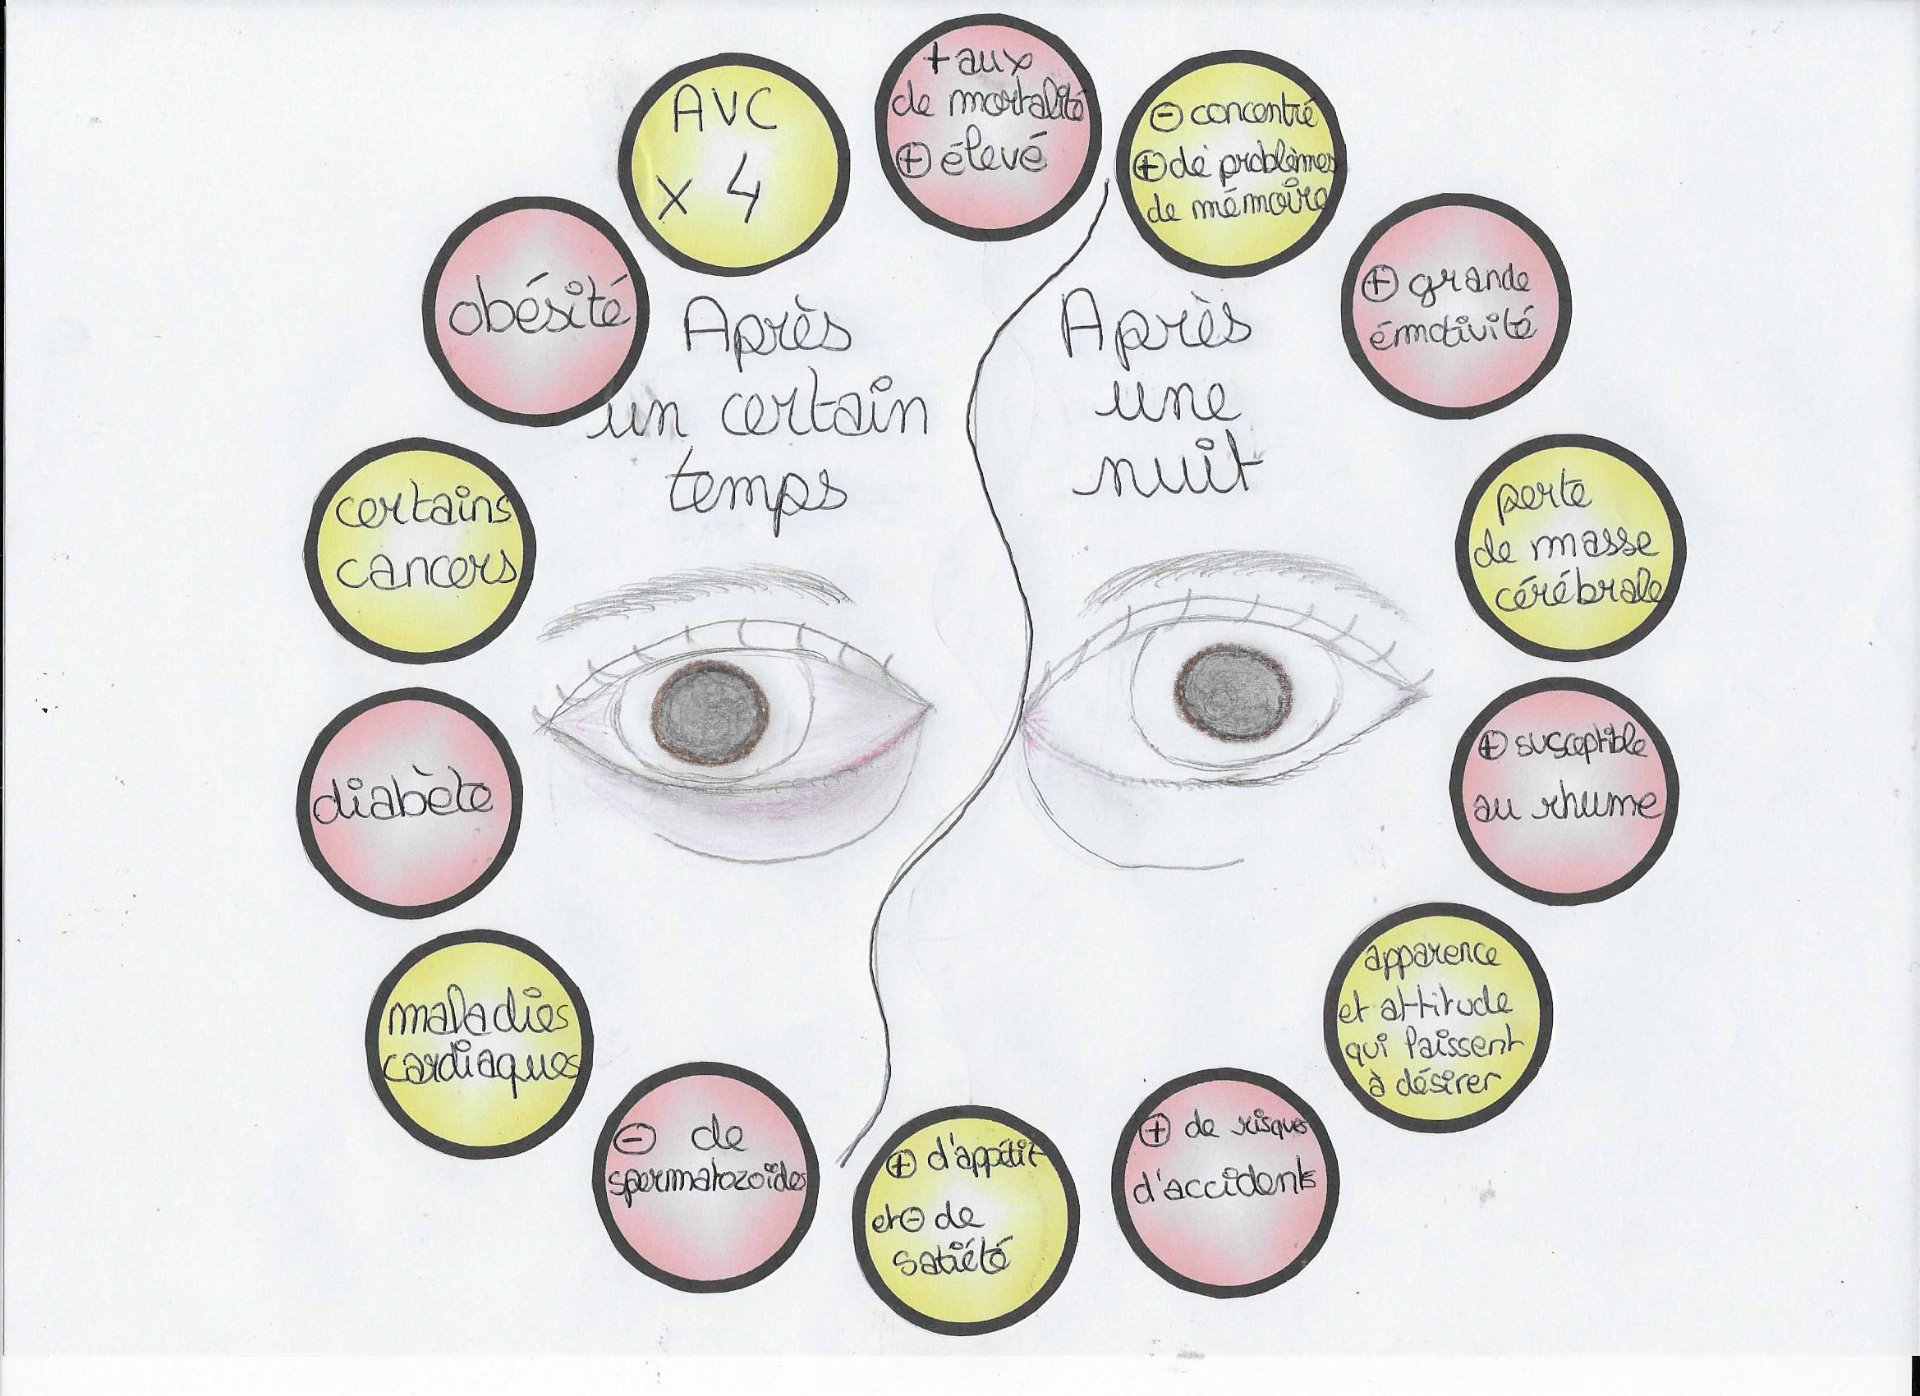 +aux
de mortalité
⊕ élevé
⊖ concentré
⊕ de problèmes
de mémoire
⊕ grande
émotivité
perte
de masse
cérébrale
⊕ susceptible
au rhume
apparence
et attitude
qui laissent
à désirer
⊕ de risques
d'accidents
⊕ d'appétit
et ⊖ de
satiété
⊖ de
spermatozoïdes
maladies
cardiaques
diabète
certains
cancers
obésité
AVC
x 4
Après
un certain
temps
Après
une
nuit